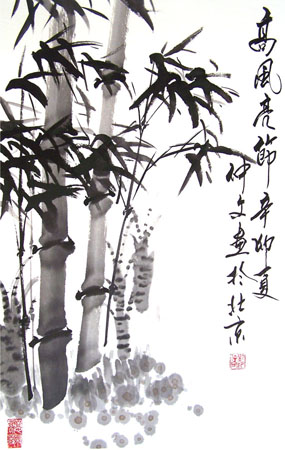 高風亮節辛卯夏
仲文畫於北京